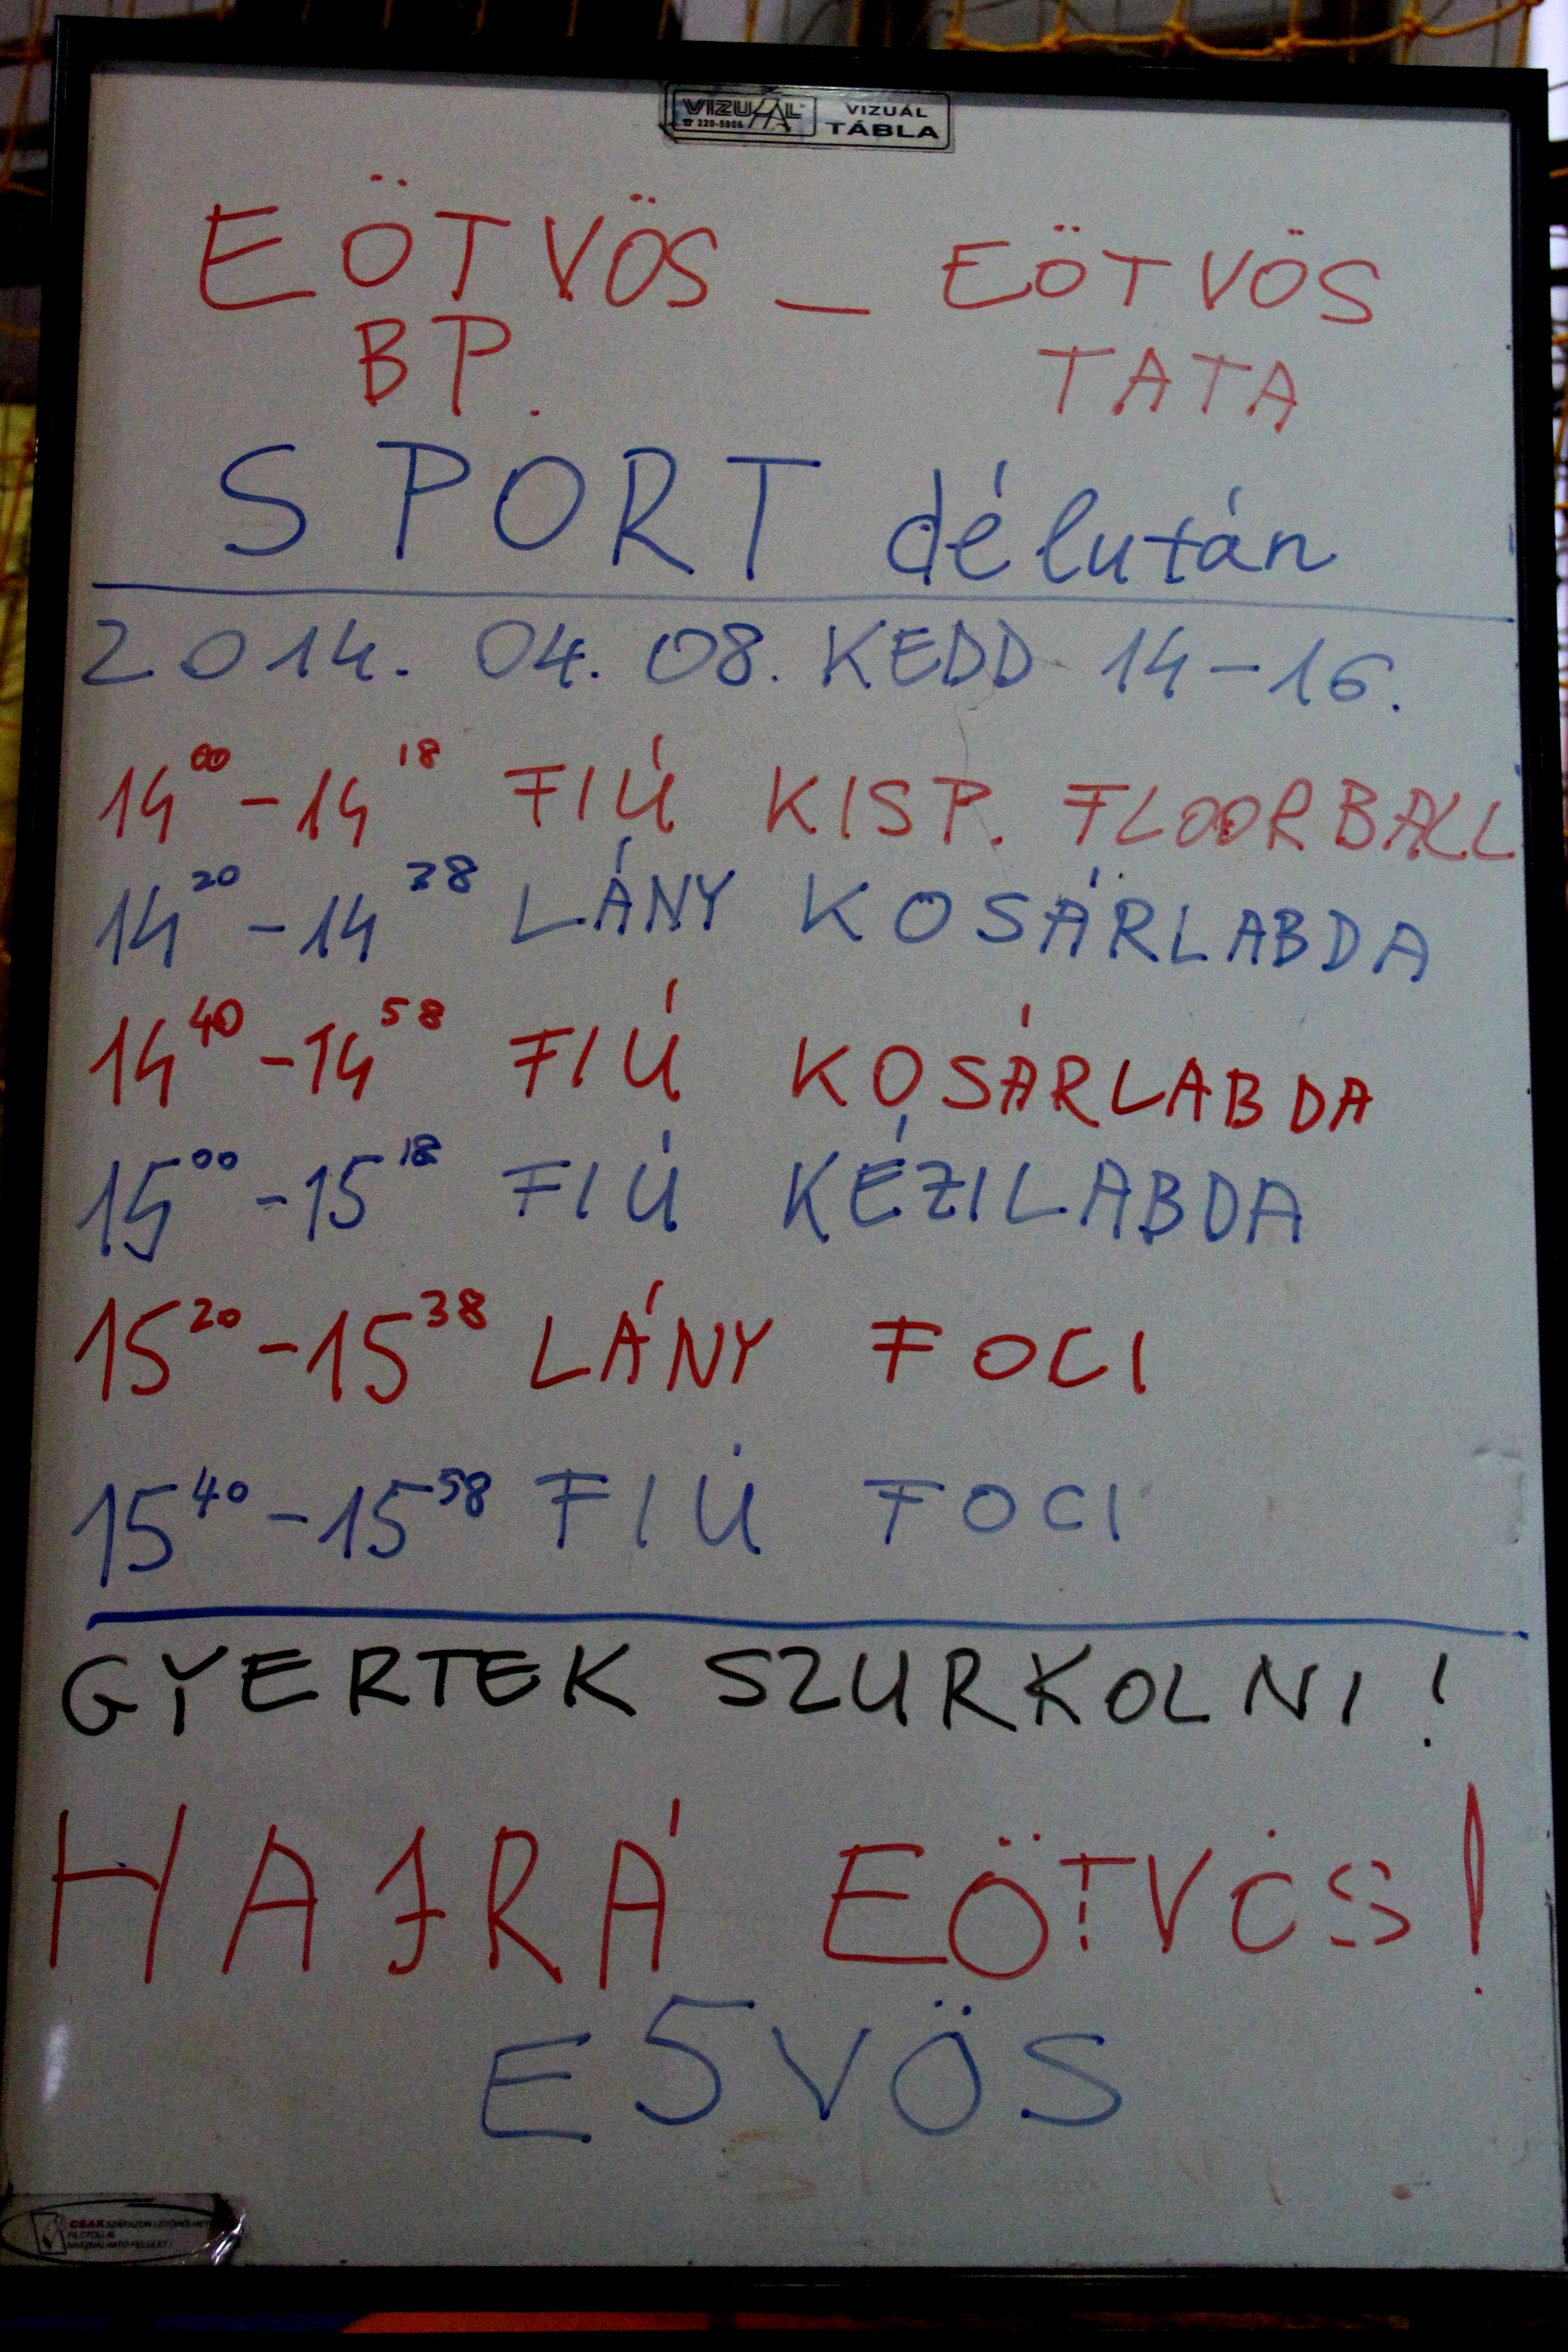 VIZUÁL VIZUÁL
☎ 220-5006 TÁBLA
EÖTVÖS - EÖTVÖS
BP. TATA
SPORT délután
2014. 04. 08. KEDD 14-16.
14⁰⁰-14¹⁸ FIÚ KISP. FLOORBALL
14²⁰-14³⁸ LÁNY KOSÁRLABDA
14⁴⁰-14⁵⁸ FIÚ KOSÁRLABDA
15⁰⁰-15¹⁸ FIÚ KÉZILABDA
15²⁰-15³⁸ LÁNY FOCI
15⁴⁰-15⁵⁸ FIÚ FOCI
GYERTEK SZURKOLNI!
HAJRÁ EÖTVÖS!
E5VÖS
CSAK SZÁRAZON LETÖRÖLHETŐ
FILCTOLLAL
HASZNÁLHATÓ FELÜLET!